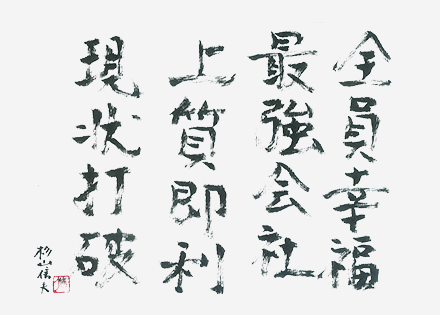 全員幸福
最強会社
上質即利
現状打破
杉山信夫